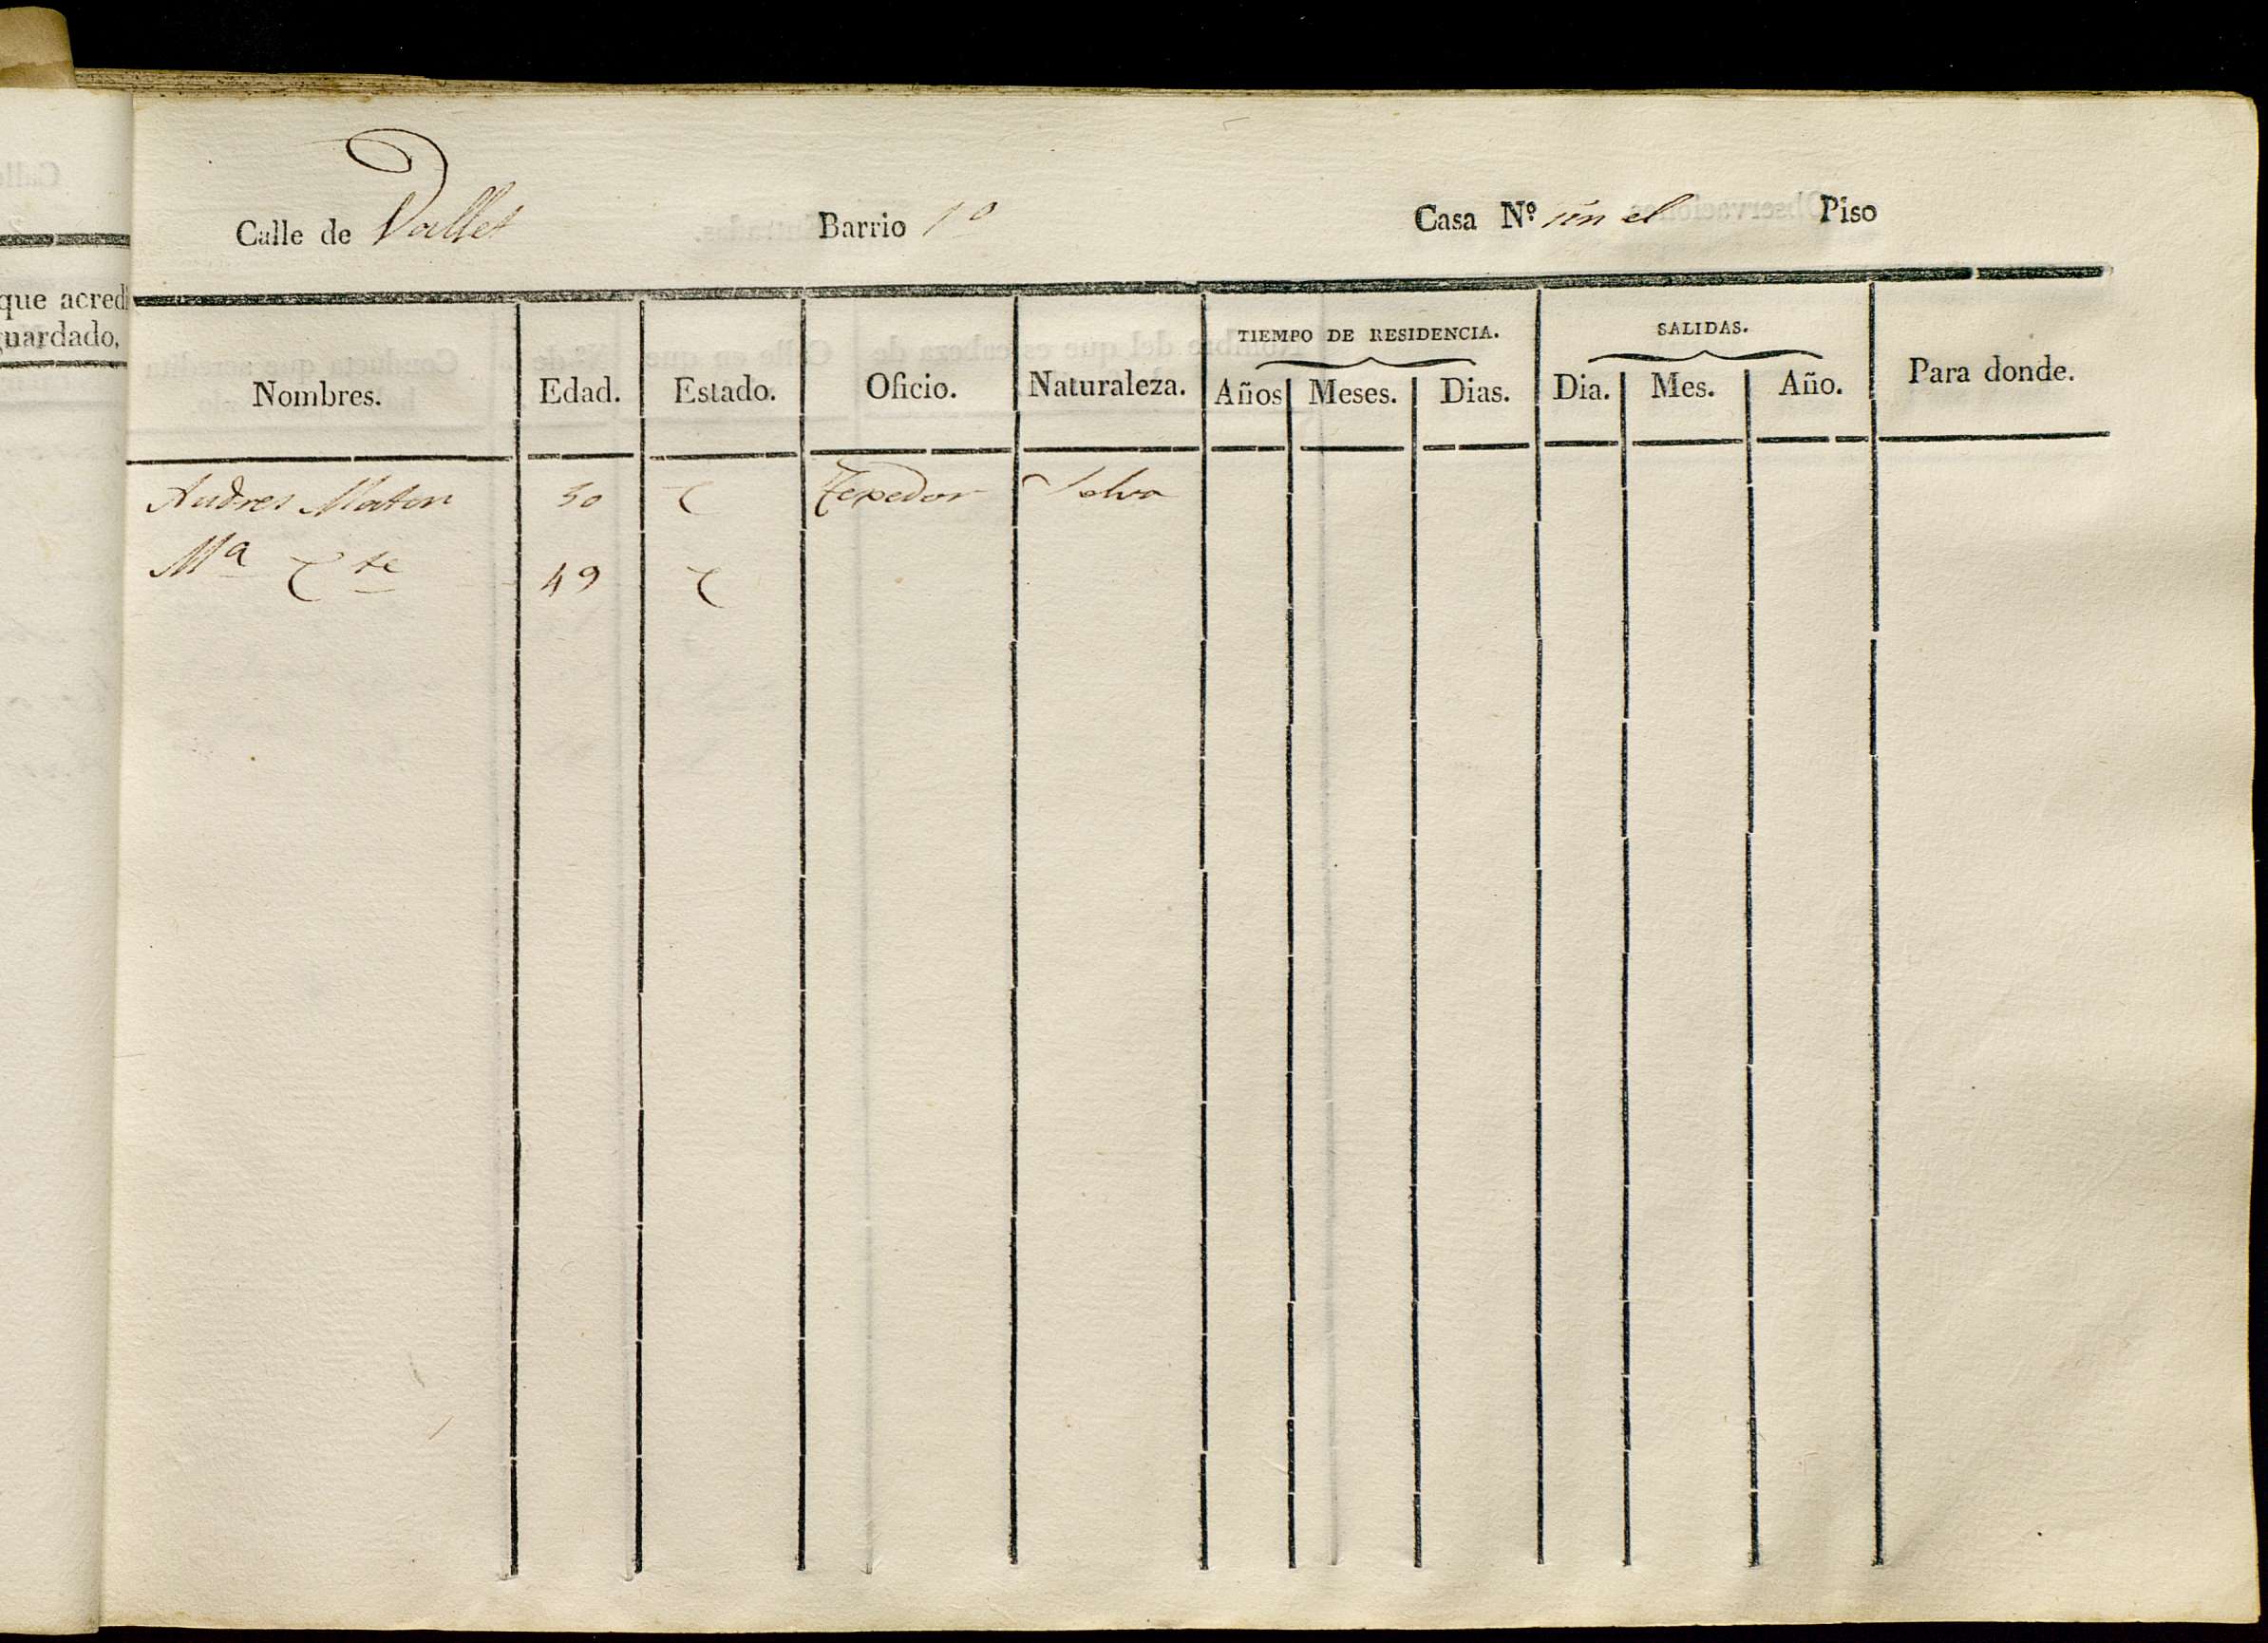 que acredi
guardado,
Calle de Vallet Barrio 1º Casa Nº sin el Piso
TIEMPO DE RESIDENCIA. SALIDAS.
Nombres. Edad. Estado. Oficio. Naturaleza. Años Meses. Dias. Dia. Mes. Año. Para donde.
Andres Maton 50 C Texedor Selva
Mª C te 49 C